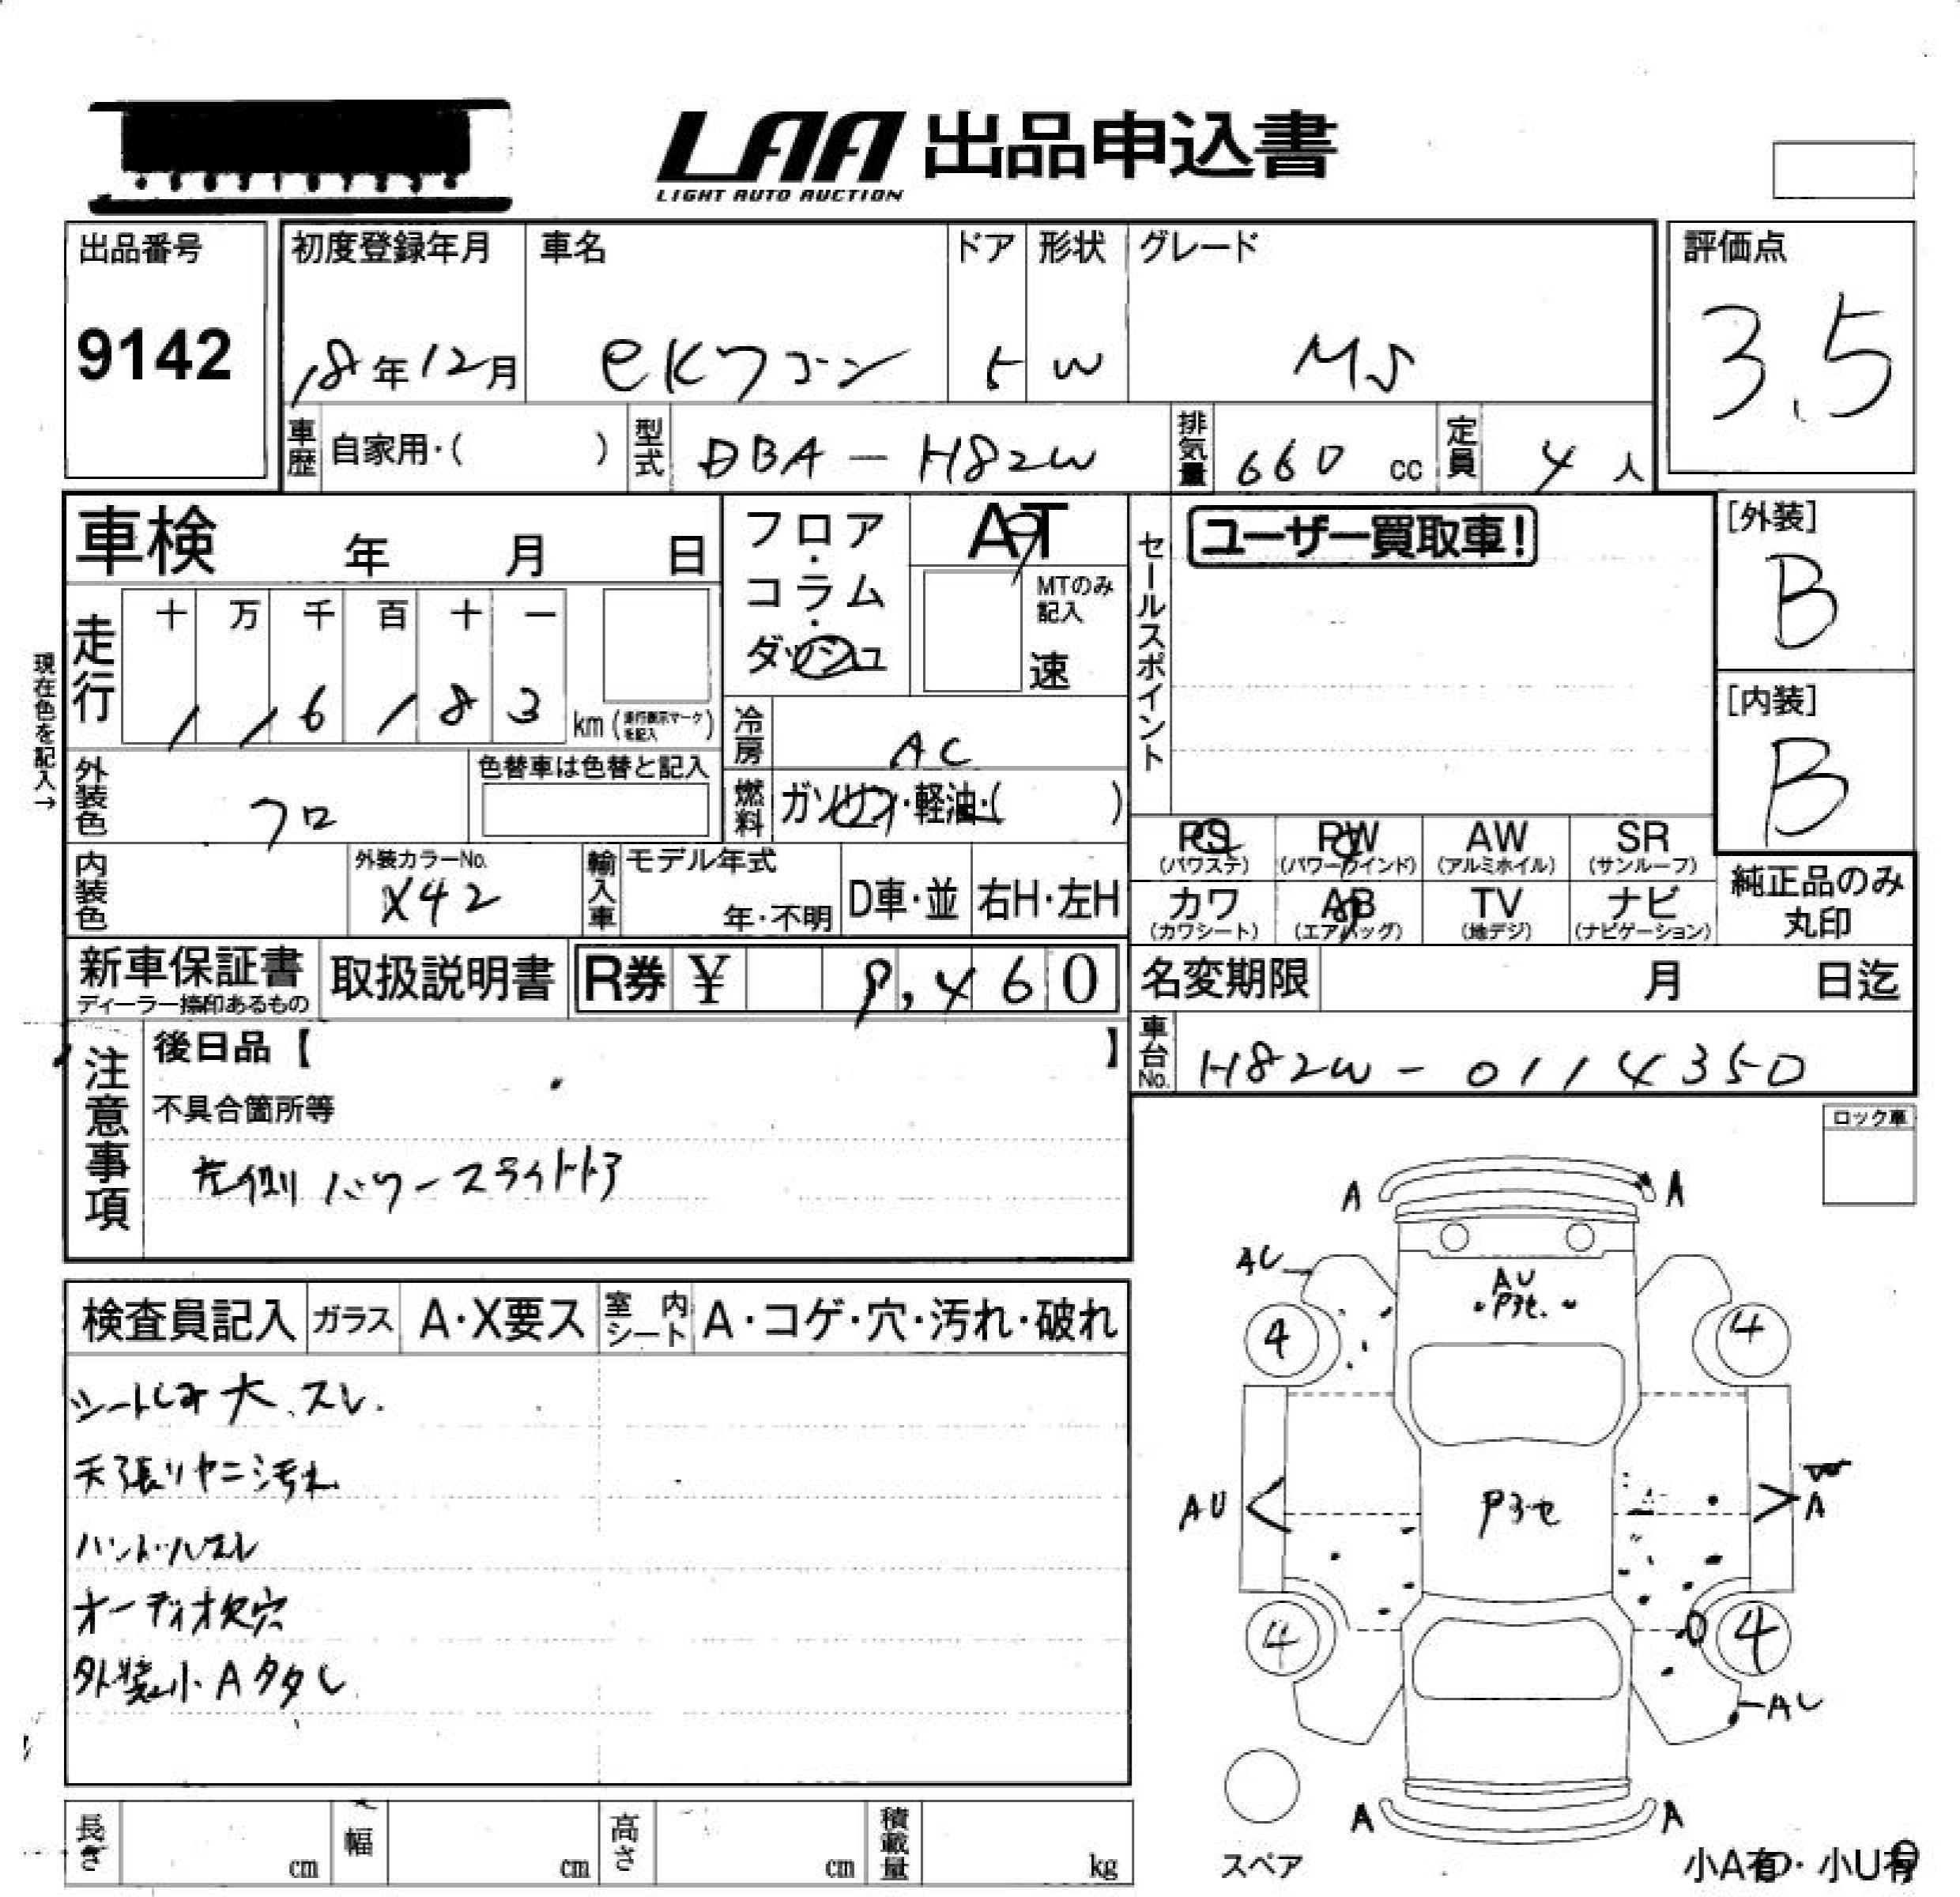 LAA 出品申込書
LIGHT AUTO AUCTION
出品番号
9142
初度登録年月
18年12月
車名
eKワゴン
ドア
5
形状
W
グレード
MS
評価点
3.5
車歴
自家用・( )
型式
DBA-H82W
排気量
660 cc
定員
4 人
車検 年 月 日
フロア・コラム・ダッシュ
AT
MTのみ記入
速
セールスポイント
ユーザー買取車!
[外装]
B
[内装]
B
現在色を記入→
走行
十 万 千 百 十 一
1 1 6 1 8 3 km (走行表示マークを記入)
冷房
AC
外装色
クロ
色替車は色替と記入
燃料
ガソリン・軽油・( )
PS (パワステ)
PW (パワーウインド)
AW (アルミホイル)
SR (サンルーフ)
カワ (カワシート)
AB (エアバッグ)
TV (地デジ)
ナビ (ナビゲーション)
純正品のみ丸印
内装色
外装カラーNo.
X42
輸入車
モデル年式
年・不明
D車・並
右H・左H
新車保証書
ディーラー捺印あるもの
取扱説明書
R券 ¥ 9,460
名変期限 月 日迄
車台No.
H82W-0114350
注意事項
後日品【 】
不具合箇所等
左側パワースライドドア
ロック車
検査員記入
ガラス
A・X要ス
室内シート
A・コゲ・穴・汚れ・破れ
シートしみ大、スレ.
天張リヤニ汚れ
ハンドルスレ
オーディオ欠穴
外装小・Aタタし
A A
AU
AU
4 4
AU
A
4 4
AU
A A
スペア
小A有・小U有
長さ cm
幅 cm
高さ cm
積載量 kg